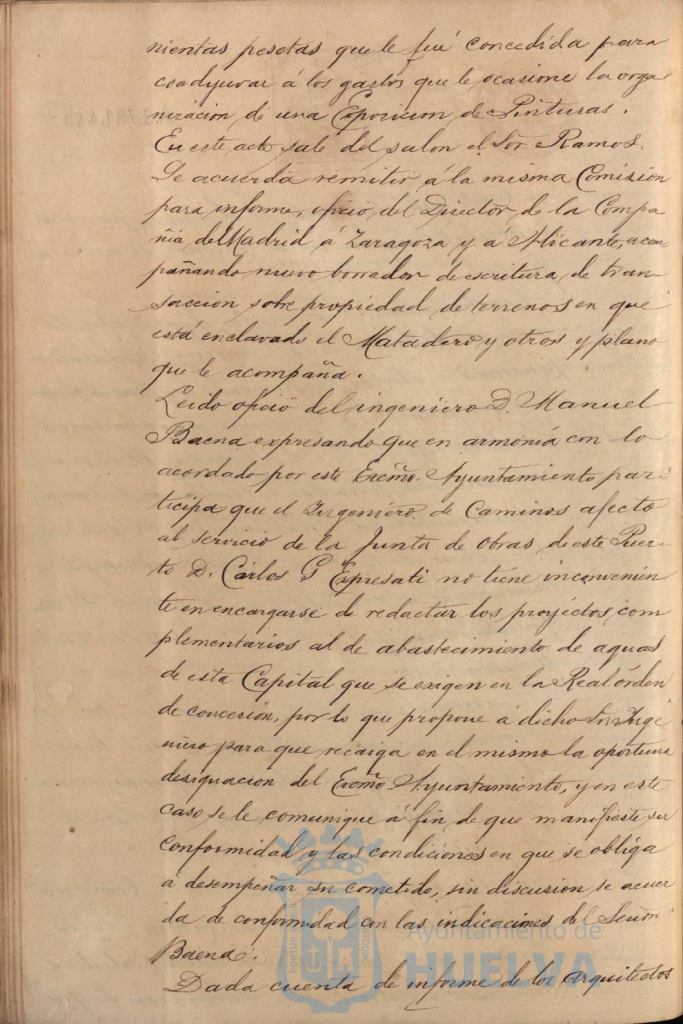 nientas pesetas que le fué concedida para
coadyuvar á los gastos que le ocasione la orga
nización de una Exposicion de Pinturas.
En este acto sale del salon el Sor. Ramos.
Se acuerda remitir á la misma Comisión
para informe, oficio del Director de la Compa
ñia de Madrid á Zaragoza y á Alicante, acom
pañando nuevo borrador de escritura de tran
saccion sobre propiedad de terrenos en que
está enclavado el Matadero y otros y plano
que le acompaña.
Leido oficio del ingeniero D. Manuel
Baena expresando que en armonía con lo
acordado por este Excmo. Ayuntamiento par
ticipa que el Ingeniero de Caminos afecto
al servicio de la Junta de Obras de este Puer
to D. Cárlos G Expresati no tiene inconvenien
te en encargarse de redactar los proyectos com
plementarios al de abastecimiento de aguas
de esta Capital que se exigen en la Real órden
de concesión, por lo que propone á dicho Sor. Inge
niero para que recaiga en el mismo la oportuna
designacion del Excmo. Ayuntamiento, y en este
caso se le comunique á fin de que manifieste su
conformidad y las condiciones en que se obliga
á desempeñar su cometido, sin discusion se acuer
da de conformidad con las indicaciones del Señor
Baena.
Dada cuenta de informe de los Arquitectos
Ayuntamiento de
HUELVA